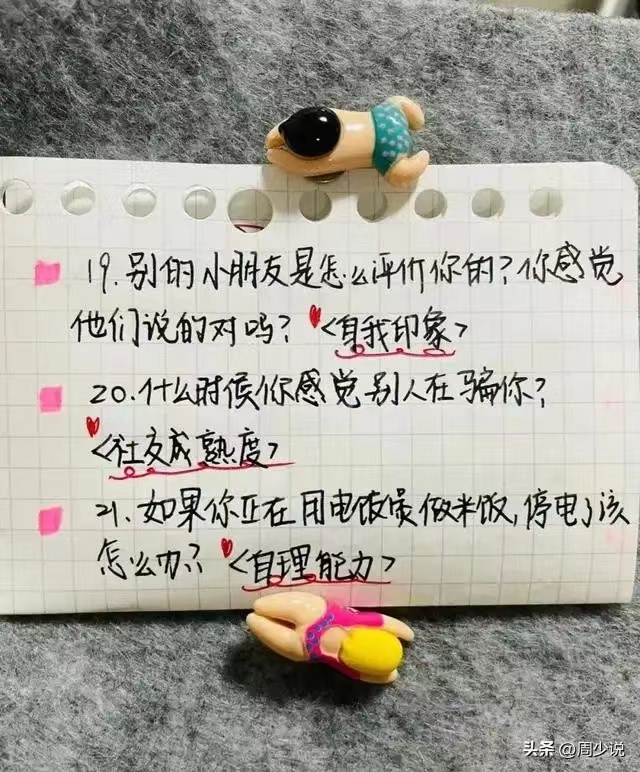 19.别的小朋友是怎么评价你的?你感觉
他们说的对吗? <自我印象>
20.什么时候你感觉别人在骗你?
<社交成熟度>
21.如果你正在用电饭煲做米饭,停电了该
怎么办? <自理能力>
头条 @周少说